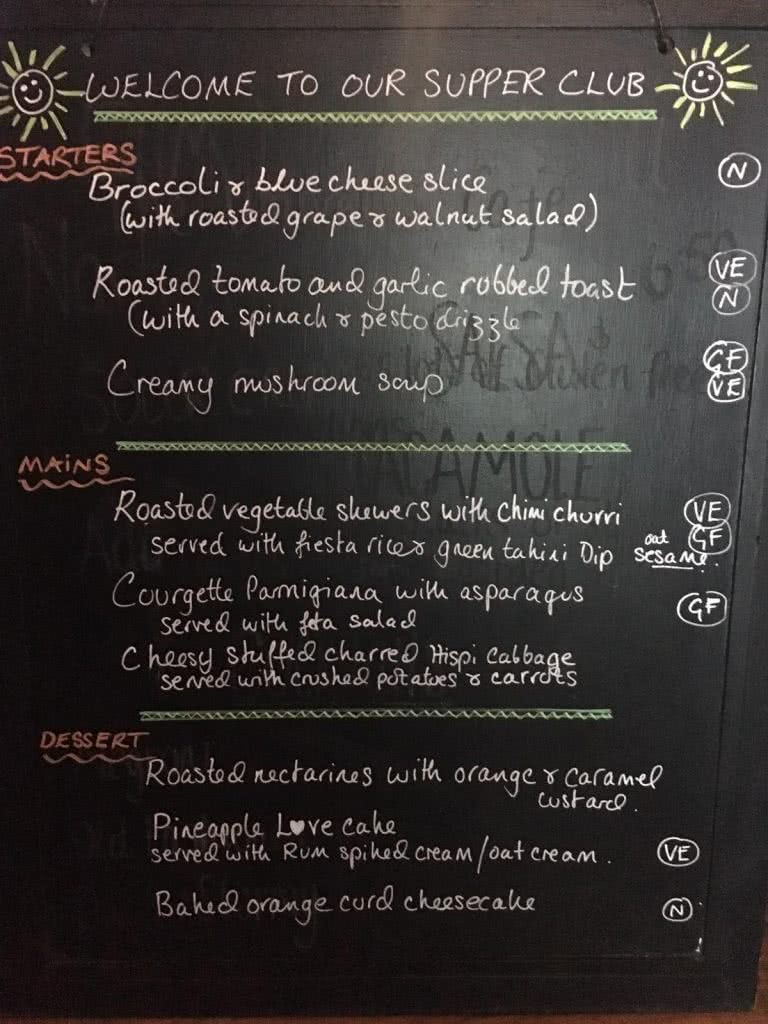 WELCOME TO OUR SUPPER CLUB
STARTERS
Broccoli & blue cheese slice N
(with roasted grape & walnut salad)
Roasted tomato and garlic rubbed toast VE
(with a spinach & pesto drizzle N
Creamy mushroom soup GF VE
MAINS
Roasted vegetable skewers with chimi churri VE
served with fiesta rice & green tahini Dip GF
sesame.
Courgette Parmigiana with asparagus GF
served with feta salad
Cheesy stuffed charred Hispi Cabbage
served with crushed potatoes & carrots
DESSERT
Roasted nectarines with orange & caramel
custard.
Pineapple Love cake
served with Rum spiked cream/oat cream. VE
Baked orange curd cheesecake N